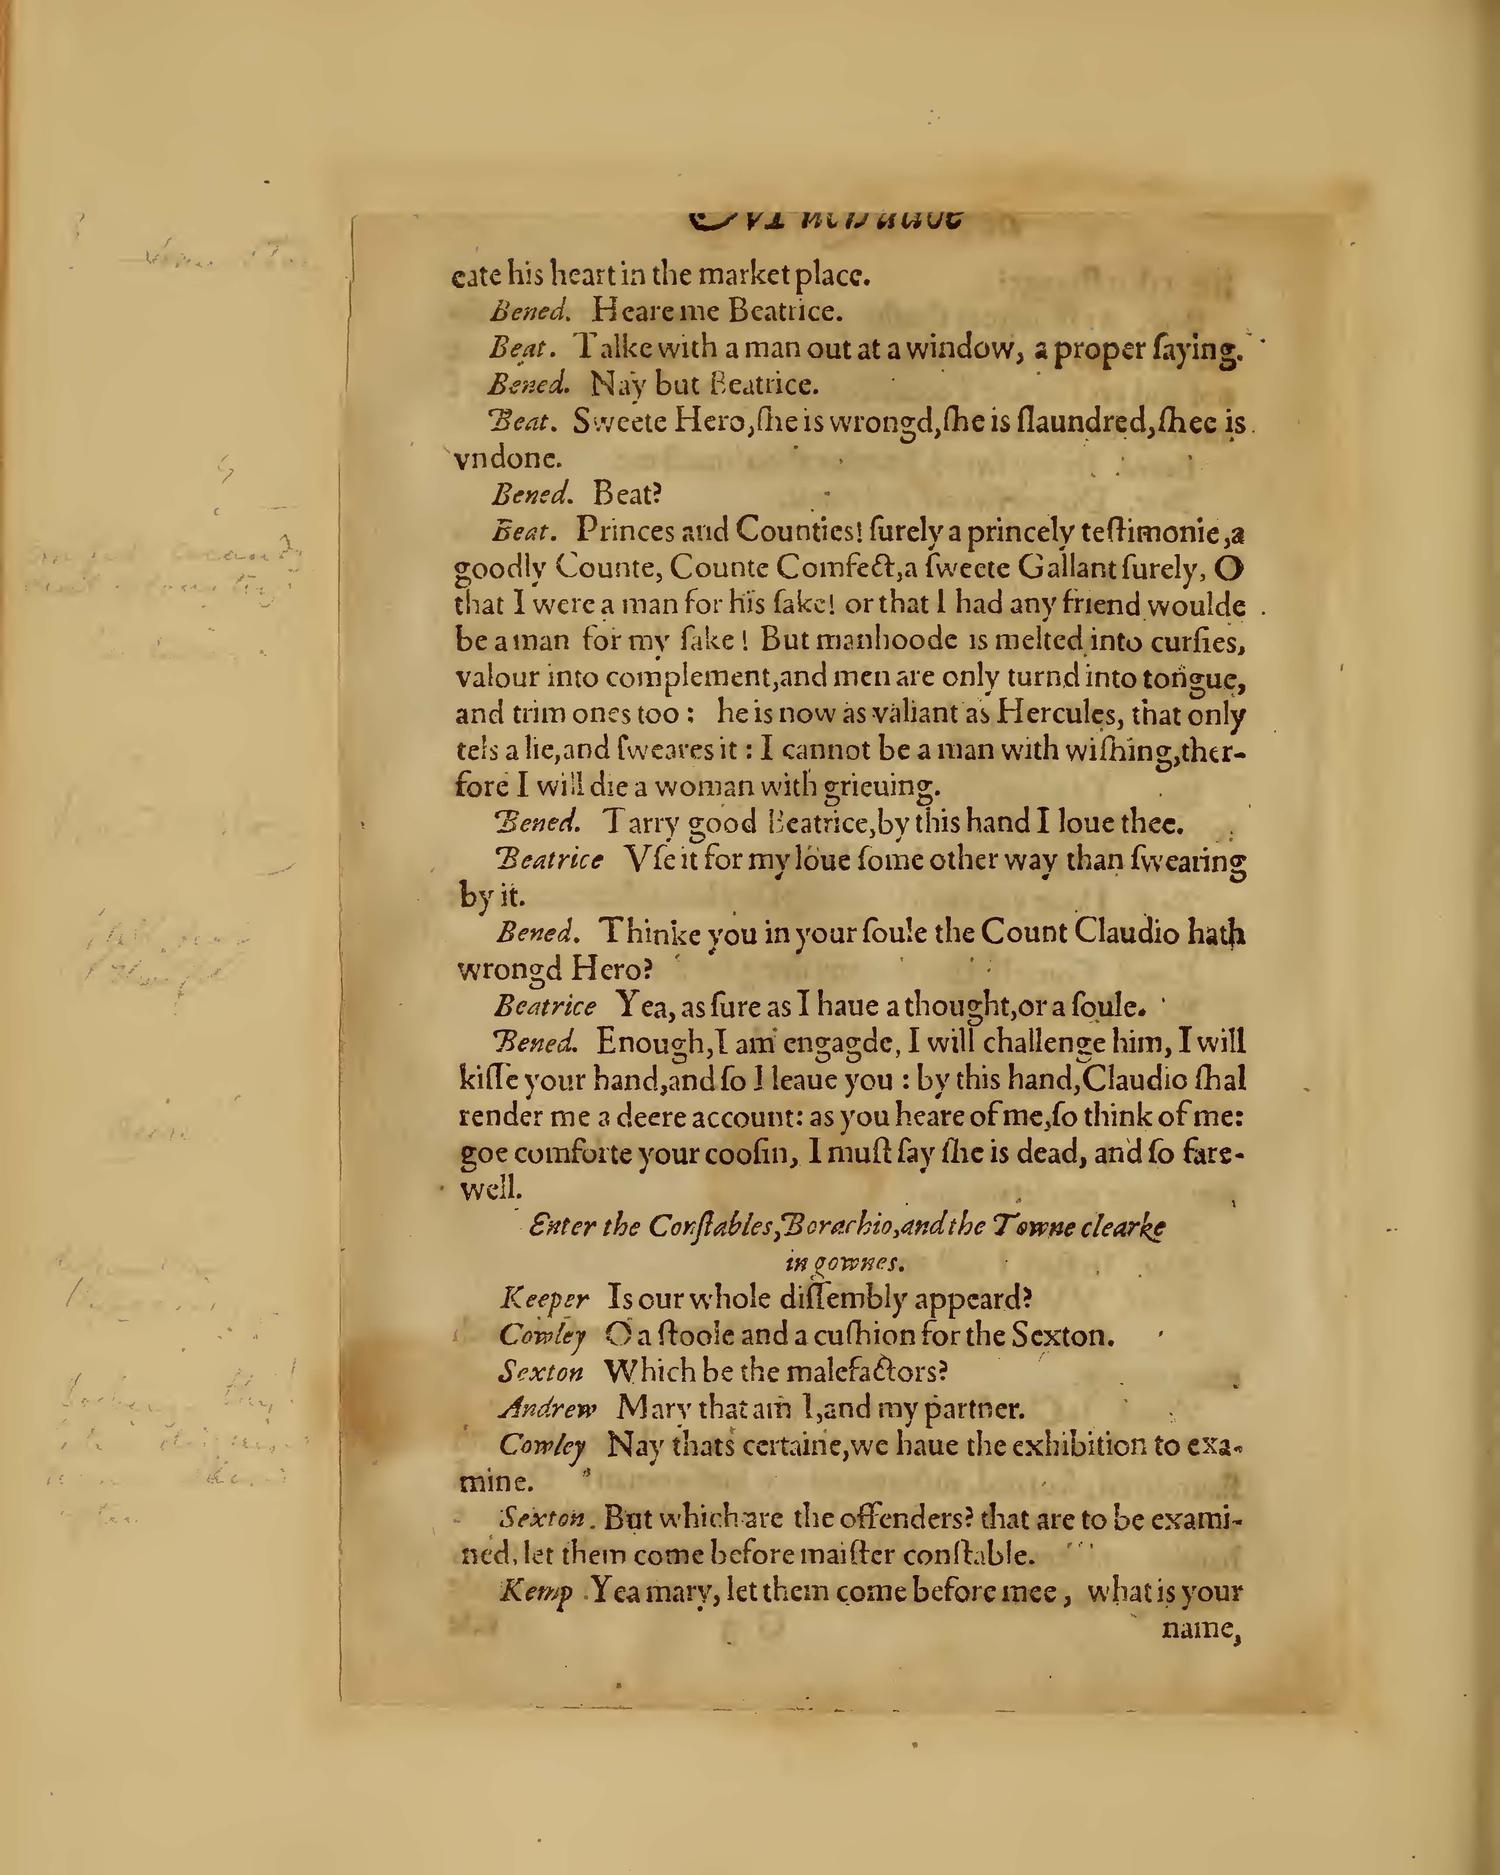 Much adoe
eate his heart in the market place.
Bened. Heare me Beatrice.
Beat. Talke with a man out at a window, a proper ſaying.
Bened. Nay but Beatrice.
Beat. Sweete Hero, ſhe is wrongd, ſhe is ſlaundred, ſhee is
vndone.
Bened. Beat?
Beat. Princes and Counties! ſurely a princely teſtimonie, a
goodly Counte, Counte Comfect, a ſweete Gallant ſurely, O
that I were a man for his ſake! or that I had any friend woulde
be a man for my ſake! But manhoode is melted into curſies,
valour into complement, and men are only turnd into tongue,
and trim ones too: he is now as valiant as Hercules, that only
tels a lie, and ſweares it: I cannot be a man with wiſhing, ther-
fore I will die a woman with grieuing.
Bened. Tarry good Beatrice, by this hand I loue thee.
Beatrice Vſe it for my loue ſome other way than ſwearing
by it.
Bened. Thinke you in your ſoule the Count Claudio hath
wrongd Hero?
Beatrice Yea, as ſure as I haue a thought, or a ſoule.
Bened. Enough, I am engagde, I will challenge him, I will
kiſſe your hand, and ſo I leaue you: by this hand, Claudio ſhal
render me a deere account: as you heare of me, ſo think of me:
goe comforte your cooſin, I muſt ſay ſhe is dead, and ſo fare-
well.
Enter the Conſtables, Borachio, and the Towne clearke
in gownes.
Keeper Is our whole diſſembly appeard?
Cowley O a ſtoole and a cuſhion for the Sexton.
Sexton Which be the malefactors?
Andrew Mary that am I, and my partner.
Cowley Nay thats certaine, we haue the exhibition to exa-
mine.
Sexton. But which are the offenders? that are to be exami-
ned, let them come before maiſter conſtable.
Kemp Yea mary, let them come before mee, what is your
name,